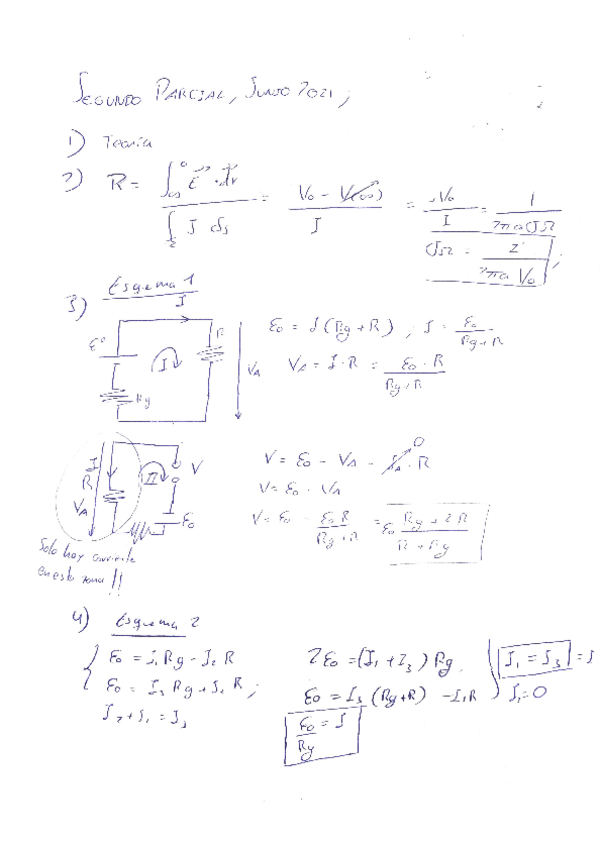 SEGUNDO PARCIAL, JUNIO 2021;
1) Teoría
2) R = ∫∞^0 E · dr / ∫Σ J ds = V0 - V(∞) / I = V0 / I = 1 / 2πaσΩ
σΩ = I / 2πa V0 ;
3) Esquema 1
I
E0
I
R
VA
Rg
E0 = I (Rg + R) , I = E0 / Rg + R
VA = I · R = E0 · R / Rg + R
I
R
VA
II
V
E0
V = E0 - VA - IA · R
0
V = E0 - VA
V = E0 - E0 R / Rg + R = E0 Rg + 2R / R + Rg
Solo hay corriente
en esta zona !!
4) Esquema 2
E0 = I1 Rg - I2 R
E0 = I3 Rg + I2 R ;
I2 + I1 = I3
2E0 = (I1 + I3) Rg
E0 = I3 (Rg + R) - I1R
I1 = I3 = I
I2 = 0
E0 / Rg = I